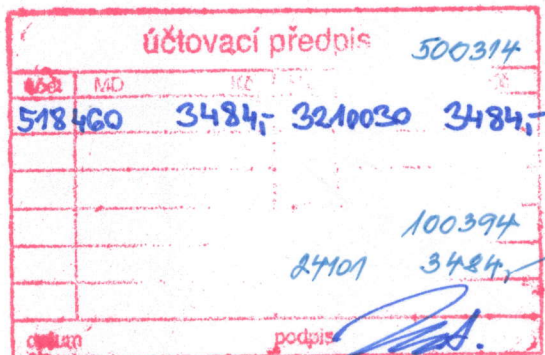 účtovací předpis 500314
účet MD Kč
518460 3484,- 3210030 3484,-
100394
24101 3484,-
datum podpis